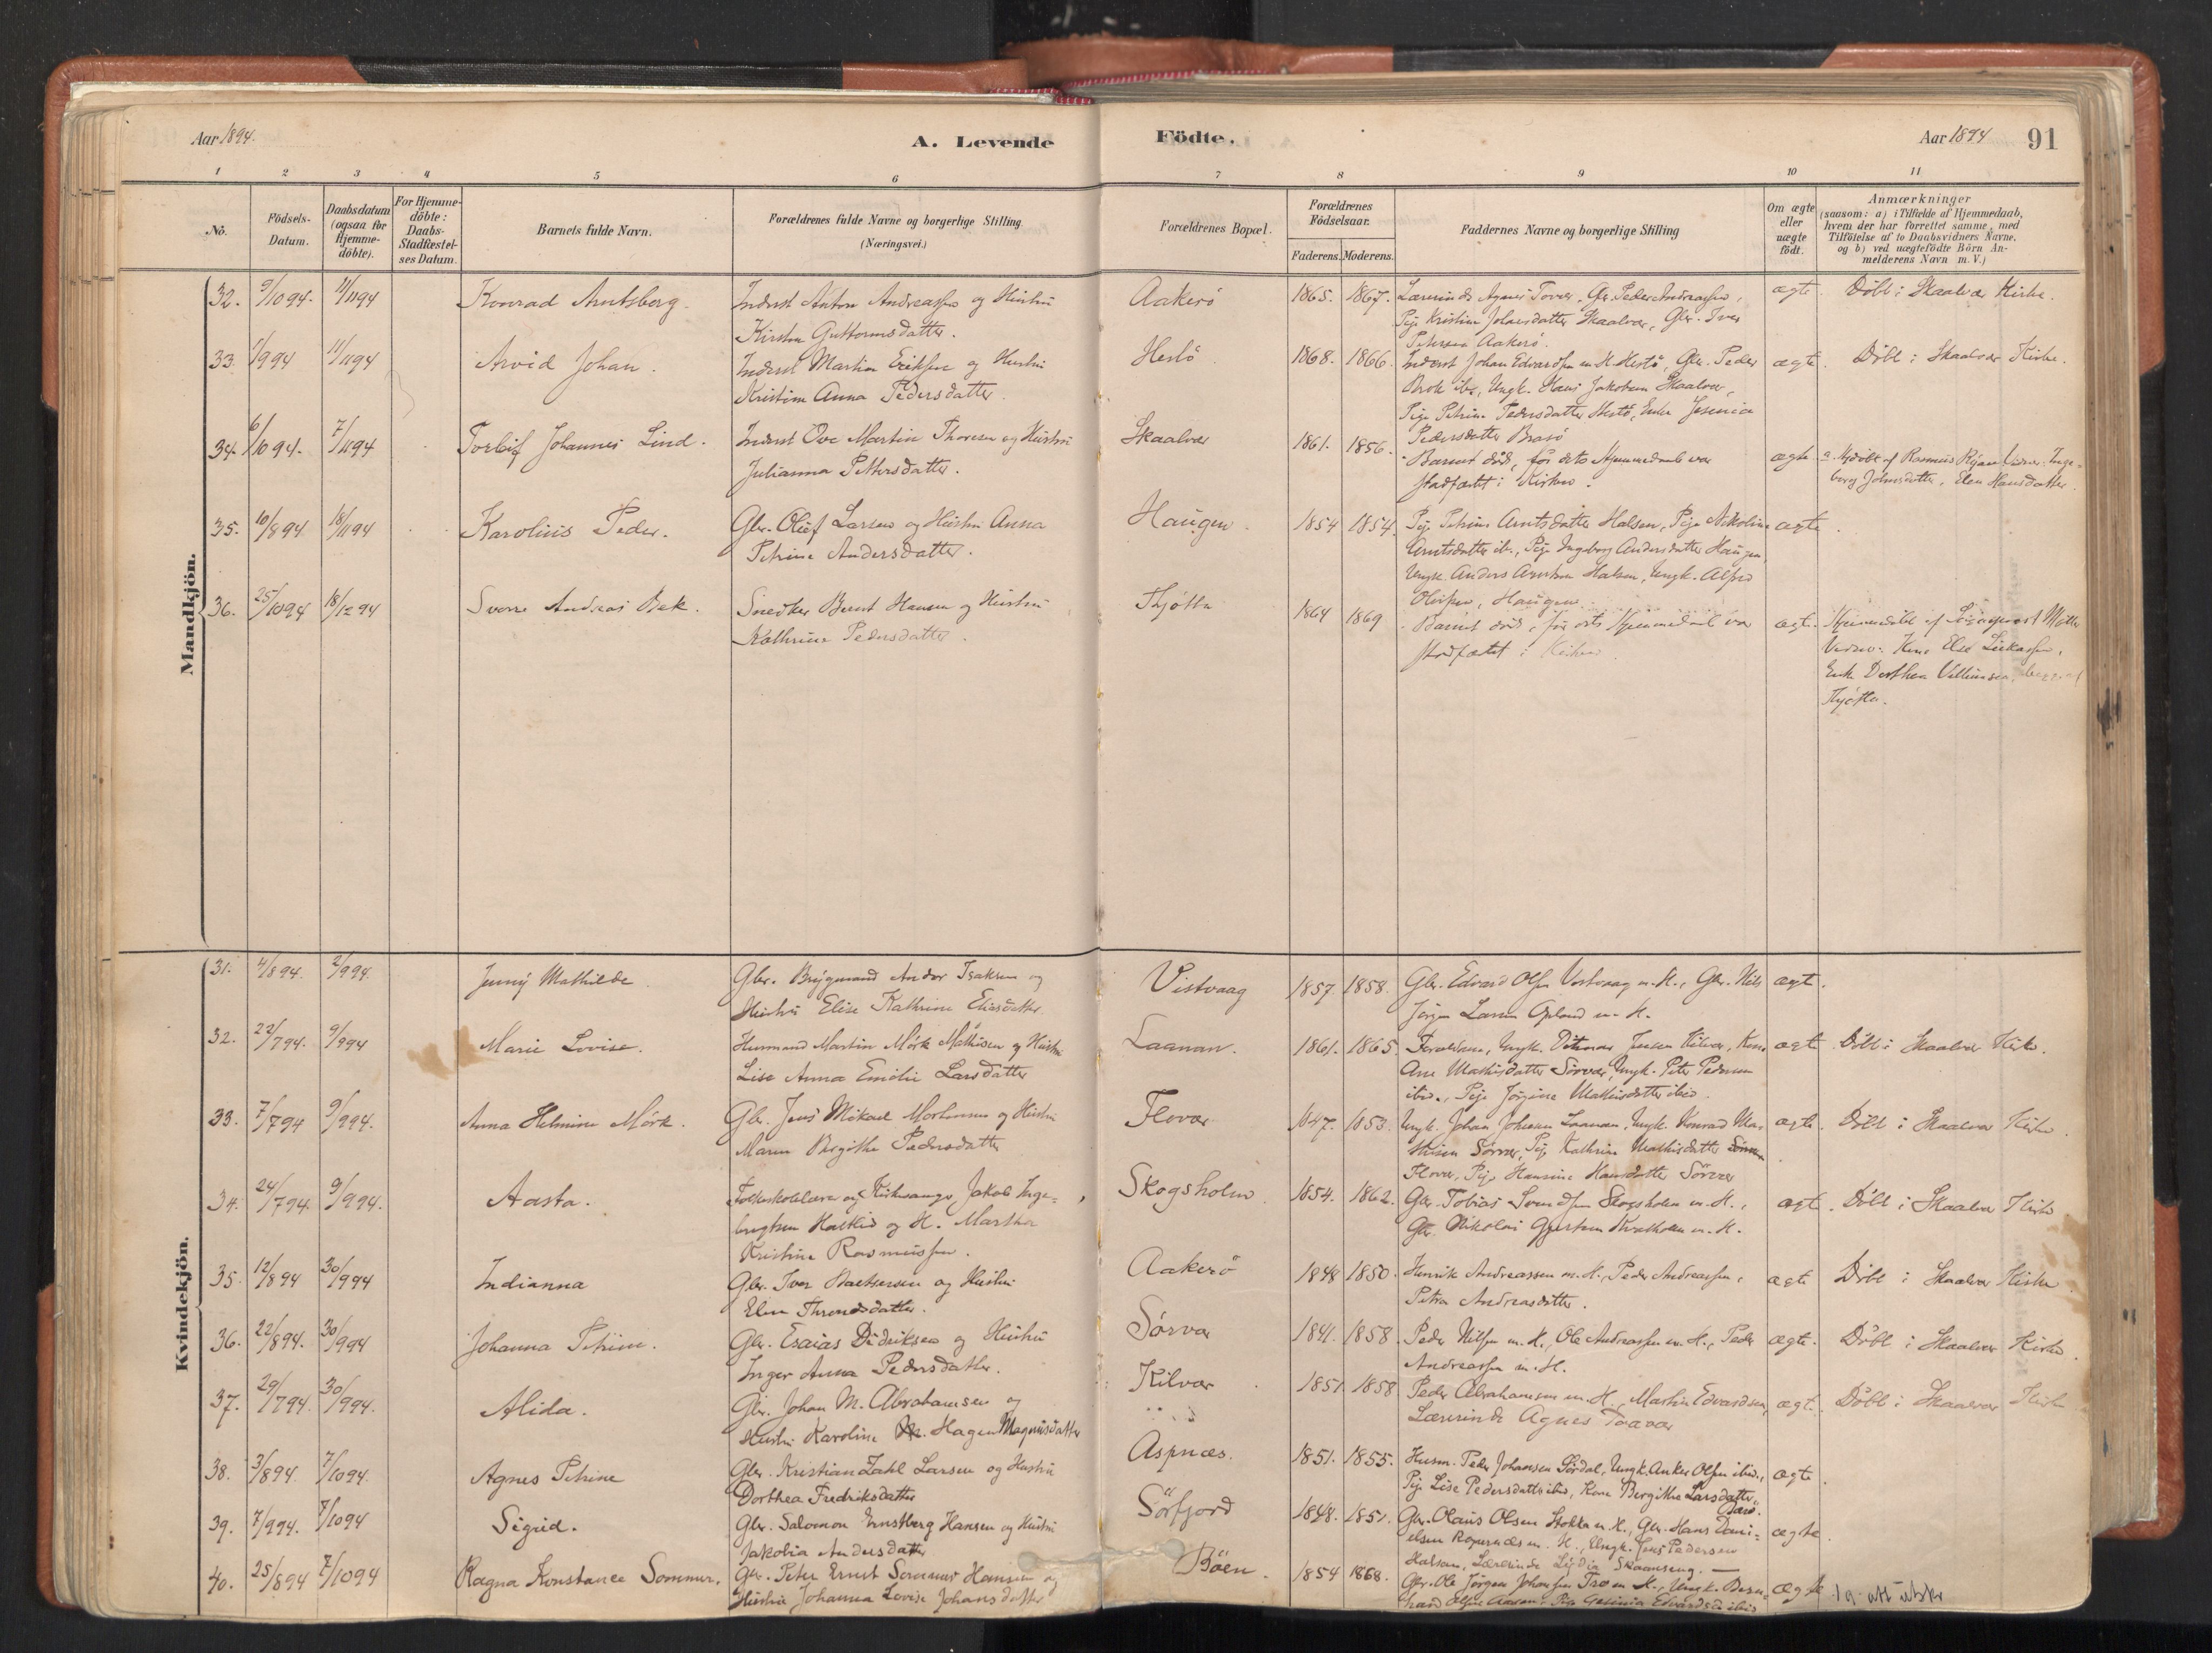 Aar 1894.
A. Levende Födte.
Aar 1894
91
1 2 3 4 5 6 7 8 9 10 11
No.
Födsels-Datum.
Daabsdatum (ogsaa for Hjemme-döbte).
For Hjemme-döbte: Daabs-Stadfæstel-ses Datum.
Barnets fulde Navn.
Forældrenes fulde Navne og borgerlige Stilling (Næringsvei.)
Forældrenes Bopæl.
Forældrenes Födselsaar.
Faderens. Moderens.
Faddernes Navne og borgerlige Stilling
Om ægte eller uægte födt.
Anmærkninger
(saasom: a) i Tilfælde af Hjemmedaab,
hvem der har forrettet samme, med
Tilföielse af to Daabsvidners Navne,
og b) ved uægtefödte Börn An-
melderens Navn m. V.)
Mandkjön.
32. 9/10 94. 11/11 94 Konrad Arntsberg. Inderst Anton Andreassen og Hustru Aakerö 1865. 1867. Lærerinde Agnes Tovær, Gbr. Peder Andreassen, ægte. Döbt i Skaalvær Kirke.
Kirsten Guttormsdatter. Pige Kristine Johansdatter Skaalvær, Gbr. Iver
Petersen Aakerö.
33. 1/9 94 11/11 94 Arvid Johan. Inderst Martin Eriksen og Hustru Hestö 1868. 1866. Inderst Johan Edvardsen m. H. Hestö, Gbr. Peder ægte. Döbt i Skaalvær Kirke.
Kristine Anna Pedersdatter. Brok ib., Ungk. Hans Jakobsen Skaalvær,
Pige Petrine Pedersdatter Hestö, Enke Jesenia
Pedersdatter Brasö
34. 6/10 94. 7/11 94 Torleif Johannes Lind. Inderst Ove Martin Thoresen og Hustru Skaalvær 1861. 1856. Barnet död, för dets Hjemmedaab var ægte a. Hjdöbt af Rasmus Vidner: Inge-
Julianna Pettersdatter. stadfæstet i Kirken. borg Johnsdatter, Elen Hansdatter.
35. 10/8 94 18/11 94 Karolius Peder. Gbr. Oluf Larsen og Hustru Anna Haugen. 1854 1854. Pige Petrine Arntsdatter Halsen, Pige Nikoline ægte.
Petrine Andersdatter. Arntsdatter ib., Pige Ingeborg Andersdatter Haugen,
Ungk. Anders Arntsen Halsen, Ungk. Alfred
Olufsen, Haugen.
36. 25/10 94 18/12 94 Sverre Andreas Bek. Snedker Bernt Hansen og Hustru Thjötta 1864 1869 Barnet död, för dets Hjemmedaab var ægt. Hjemmedöbt af Sogneprest
Kathrine Pedersdatter. stadfæstet i Kirken. Vidner: Kone Else Lukassen,
Enke Dorthea Villumsen, begge af
Thjötta.
Kvindekjön.
31. 4/8 94. 2/9 94. Jenny Mathilde. Gbr. Brygmand Andor Isaksen og Vistvaag 1857. 1858. Gbr. Edvard Olsen Vistvaag m. H., Gbr. Nils ægt.
Hustru Elise Kathrine Eliasdatter. Jörgen Larsen m. H.
32. 22/7 94. 9/9 94 Marie Lovise. Husmand Martin Mörk Mathisen og Hustru Laanan. 1861. 1865. Forældrene, Ungk. Ditmar Jensen Kilvær, Kone ægt. Döbt i Skaalvær Kirke.
Lise Anna Emilie Larsdatter Ane Mathisdatter Sörvær, Ungk. Peter Pedersen
ibid., Pige Jörgine Mathisdatter ibid.
33. 7/7 94 9/9 94. Anna Helmine Mörk. Gbr. Jens Mikael Mortensen og Hustru Flovær 1847. 1853. Ungk. Johan Johnsen Laanan, Ungk. Konrad Ma- ægte. Döbt i Skaalvær Kirke
Maren Bergithe Pedersdatter thisen Sörvær, Pige Kathrine Mathisdatter
Flovær, Pige Hansine Hansdatter Sörvær
34. 24/7 94. 9/9 94. Aasta. Folkeskolelærer og Kirkesanger Jakob Inge- Skogsholm. 1854. 1862. Gbr. Tobias Svendsen Skogsholm m. H., ægt. Döbt i Skaalvær Kirke
brigtsen Hartkid og H. Martha Gbr. Nikolai Gjertsen m. H.
Kristine Rasmussen.
35. 12/8 94 30/9 94 Indianna Gbr. Iver Baltsersen og Hustru Aakerö 1848 1850. Henrik Andreassen m. H., Peder Andreassen, ægte Döbt i Skaalvær Kirke
Elen Throndsdatter. Petra Andreasdatter.
36. 22/8 94. 30/9 94 Johanna Petrine. Gbr. Esaias Didriksen og Hustru Sörvær 1841. 1858. Peder Nilsen m. H., Ole Andreassen m. H., Peder ægte. Döbt i Skaalvær Kirke.
Inger Anna Pedersdatter. Andreassen m. H.
37. 29/7 94. 30/9 94. Alida. Gbr. Johan M. Abrahamsen og Kilvær 1851 1858. Peder Abrahamsen m. H., Martin Edvardsen, ægt. Döbt i Skaalvær Kirke
Hustru Karoline Hagen Magnusdatter Lærerinde Agnes Toavær
38. 3/8 94. 7/10 94. Agnes Petrine Gbr. Kristian Zahl Larsen og Hustru Aspnæs. 1851. 1855. Husm. Peder Johansen Sördal, Ungk. Anker Olsen ibid., ægte.
Dorthea Fredriksdatter Pige Lise Pedersdatter ibid, Kone Bergithe Larsdatter
39. 7/9 94. 7/10 94 Sigrid. Gbr. Salomon Ernstberg Hansen og Hustru Sörfjord 1848. 1851. Gbr. Olaus Olsen Stokka m. H., Gbr. Hans Dani- ægte.
Jakobia Andersdatter elsen m. H., Ungk. Jens Pedersen
Halsen, Lærerinde Lydia Skaanseng. —
40. 25/8 94 7/10 94 Ragna Konstance Sommer. Gbr. Peter Ernst Sommer Hansen og Böen. 1854 1868. Gbr. Ole Jörgen Johansen Tro m. H., Ungk. Bern- ægte
Hustru Johanna Lovise Johansdatter hard Olsen Aasen, Pige Gesinia Edvardsd. ibid